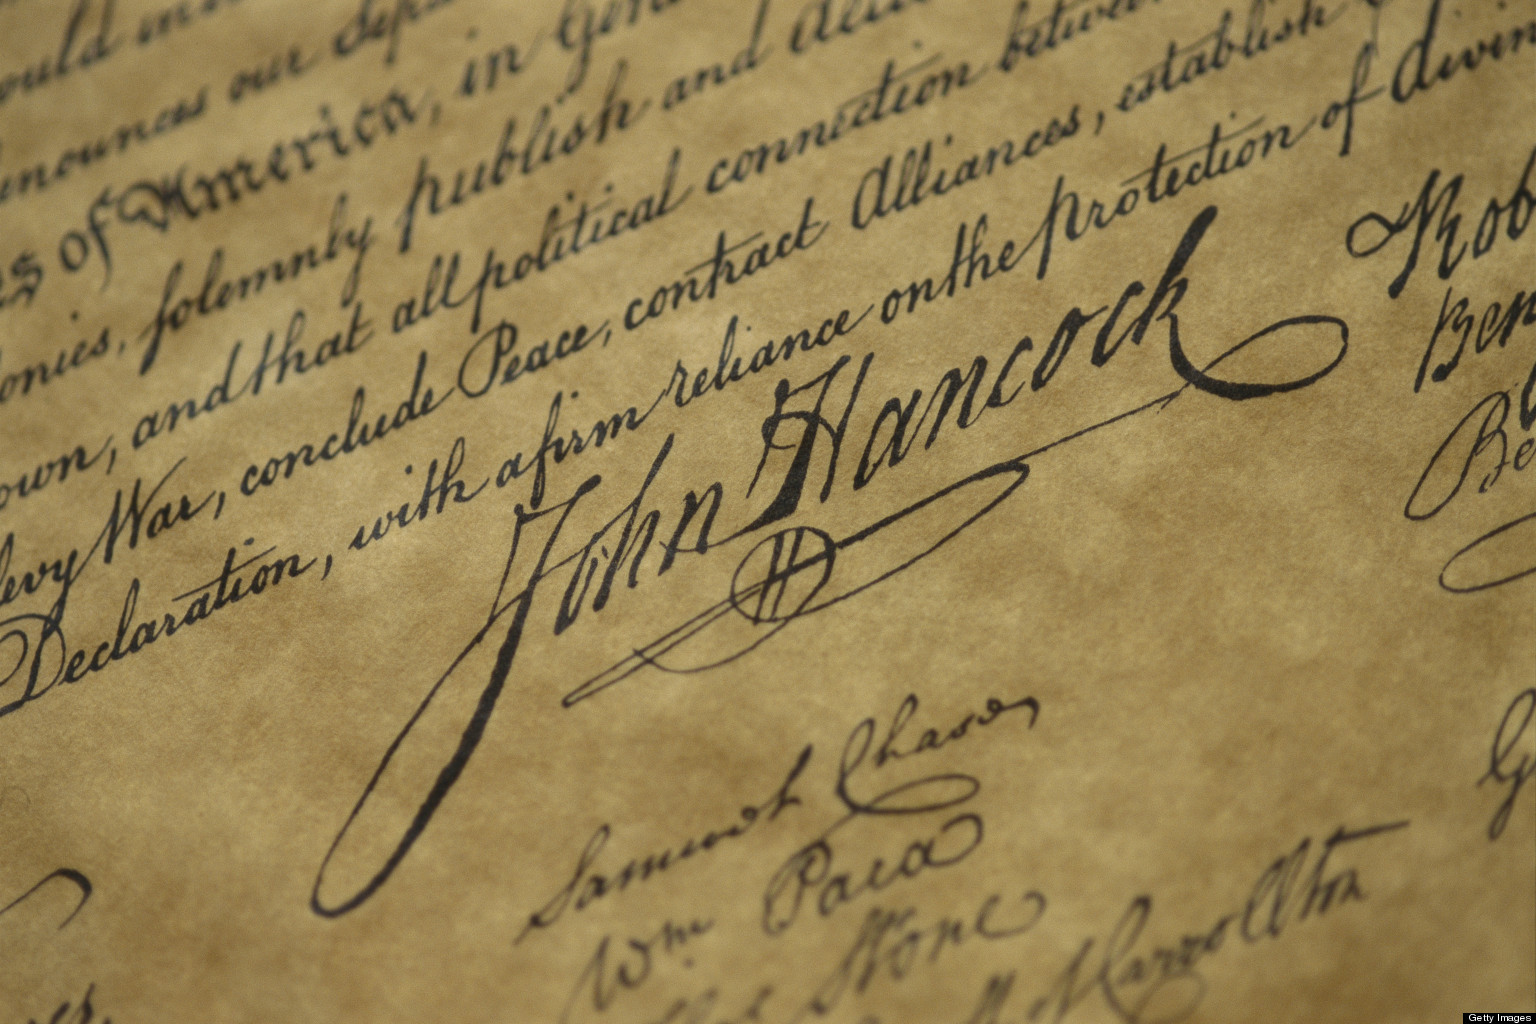 ould in
our
es of America, in
onies, solemnly publish and
own, and that all political connection
levy War, conclude Peace, contract Alliances, establish
Declaration, with a firm reliance on the protection of divin
John Hancock
Rob
Ben
Be
G
Samuel Chase
Wm Paca
Stone
Carrollton
Getty Images